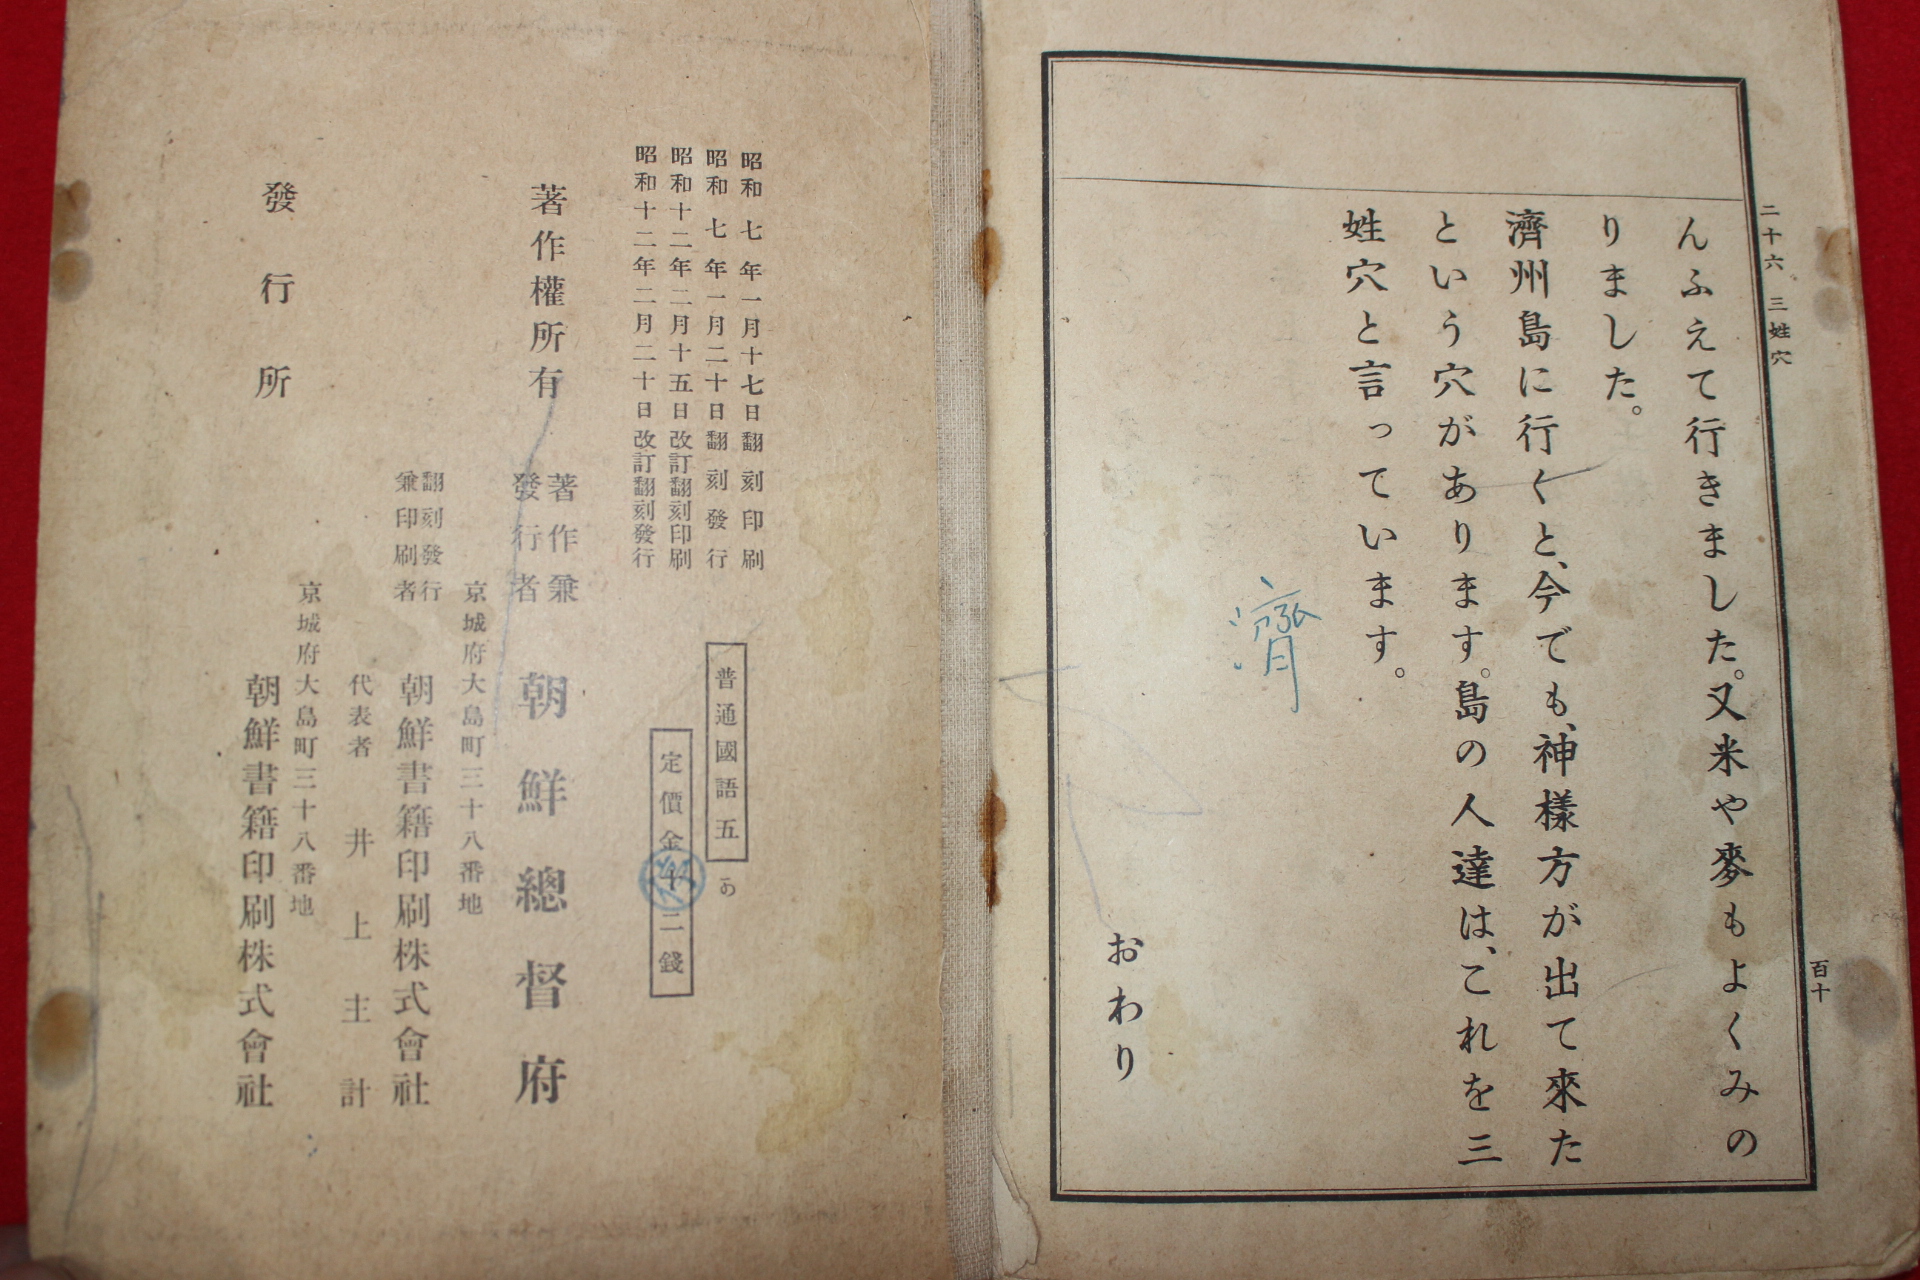 二十六 三姓穴
百十
んふえて行きました。又米や麥もよくみの
りました。
濟州島に行くと、今でも、神樣方が出て來た
という穴があります。島の人達は、これを三
姓穴と言っています。
濟
おわり
昭和七年一月十七日翻刻印刷
昭和七年一月二十日翻刻發行
昭和十二年二月十五日改訂翻刻印刷
昭和十二年二月二十日改訂翻刻發行
普通國語五
あ
定價金十二錢
著作權所有
著作兼
發行者
朝鮮總督府
京城府大島町三十八番地
翻刻發行
兼印刷者
朝鮮書籍印刷株式會社
代表者 井上主計
京城府大島町三十八番地
發行所
朝鮮書籍印刷株式會社